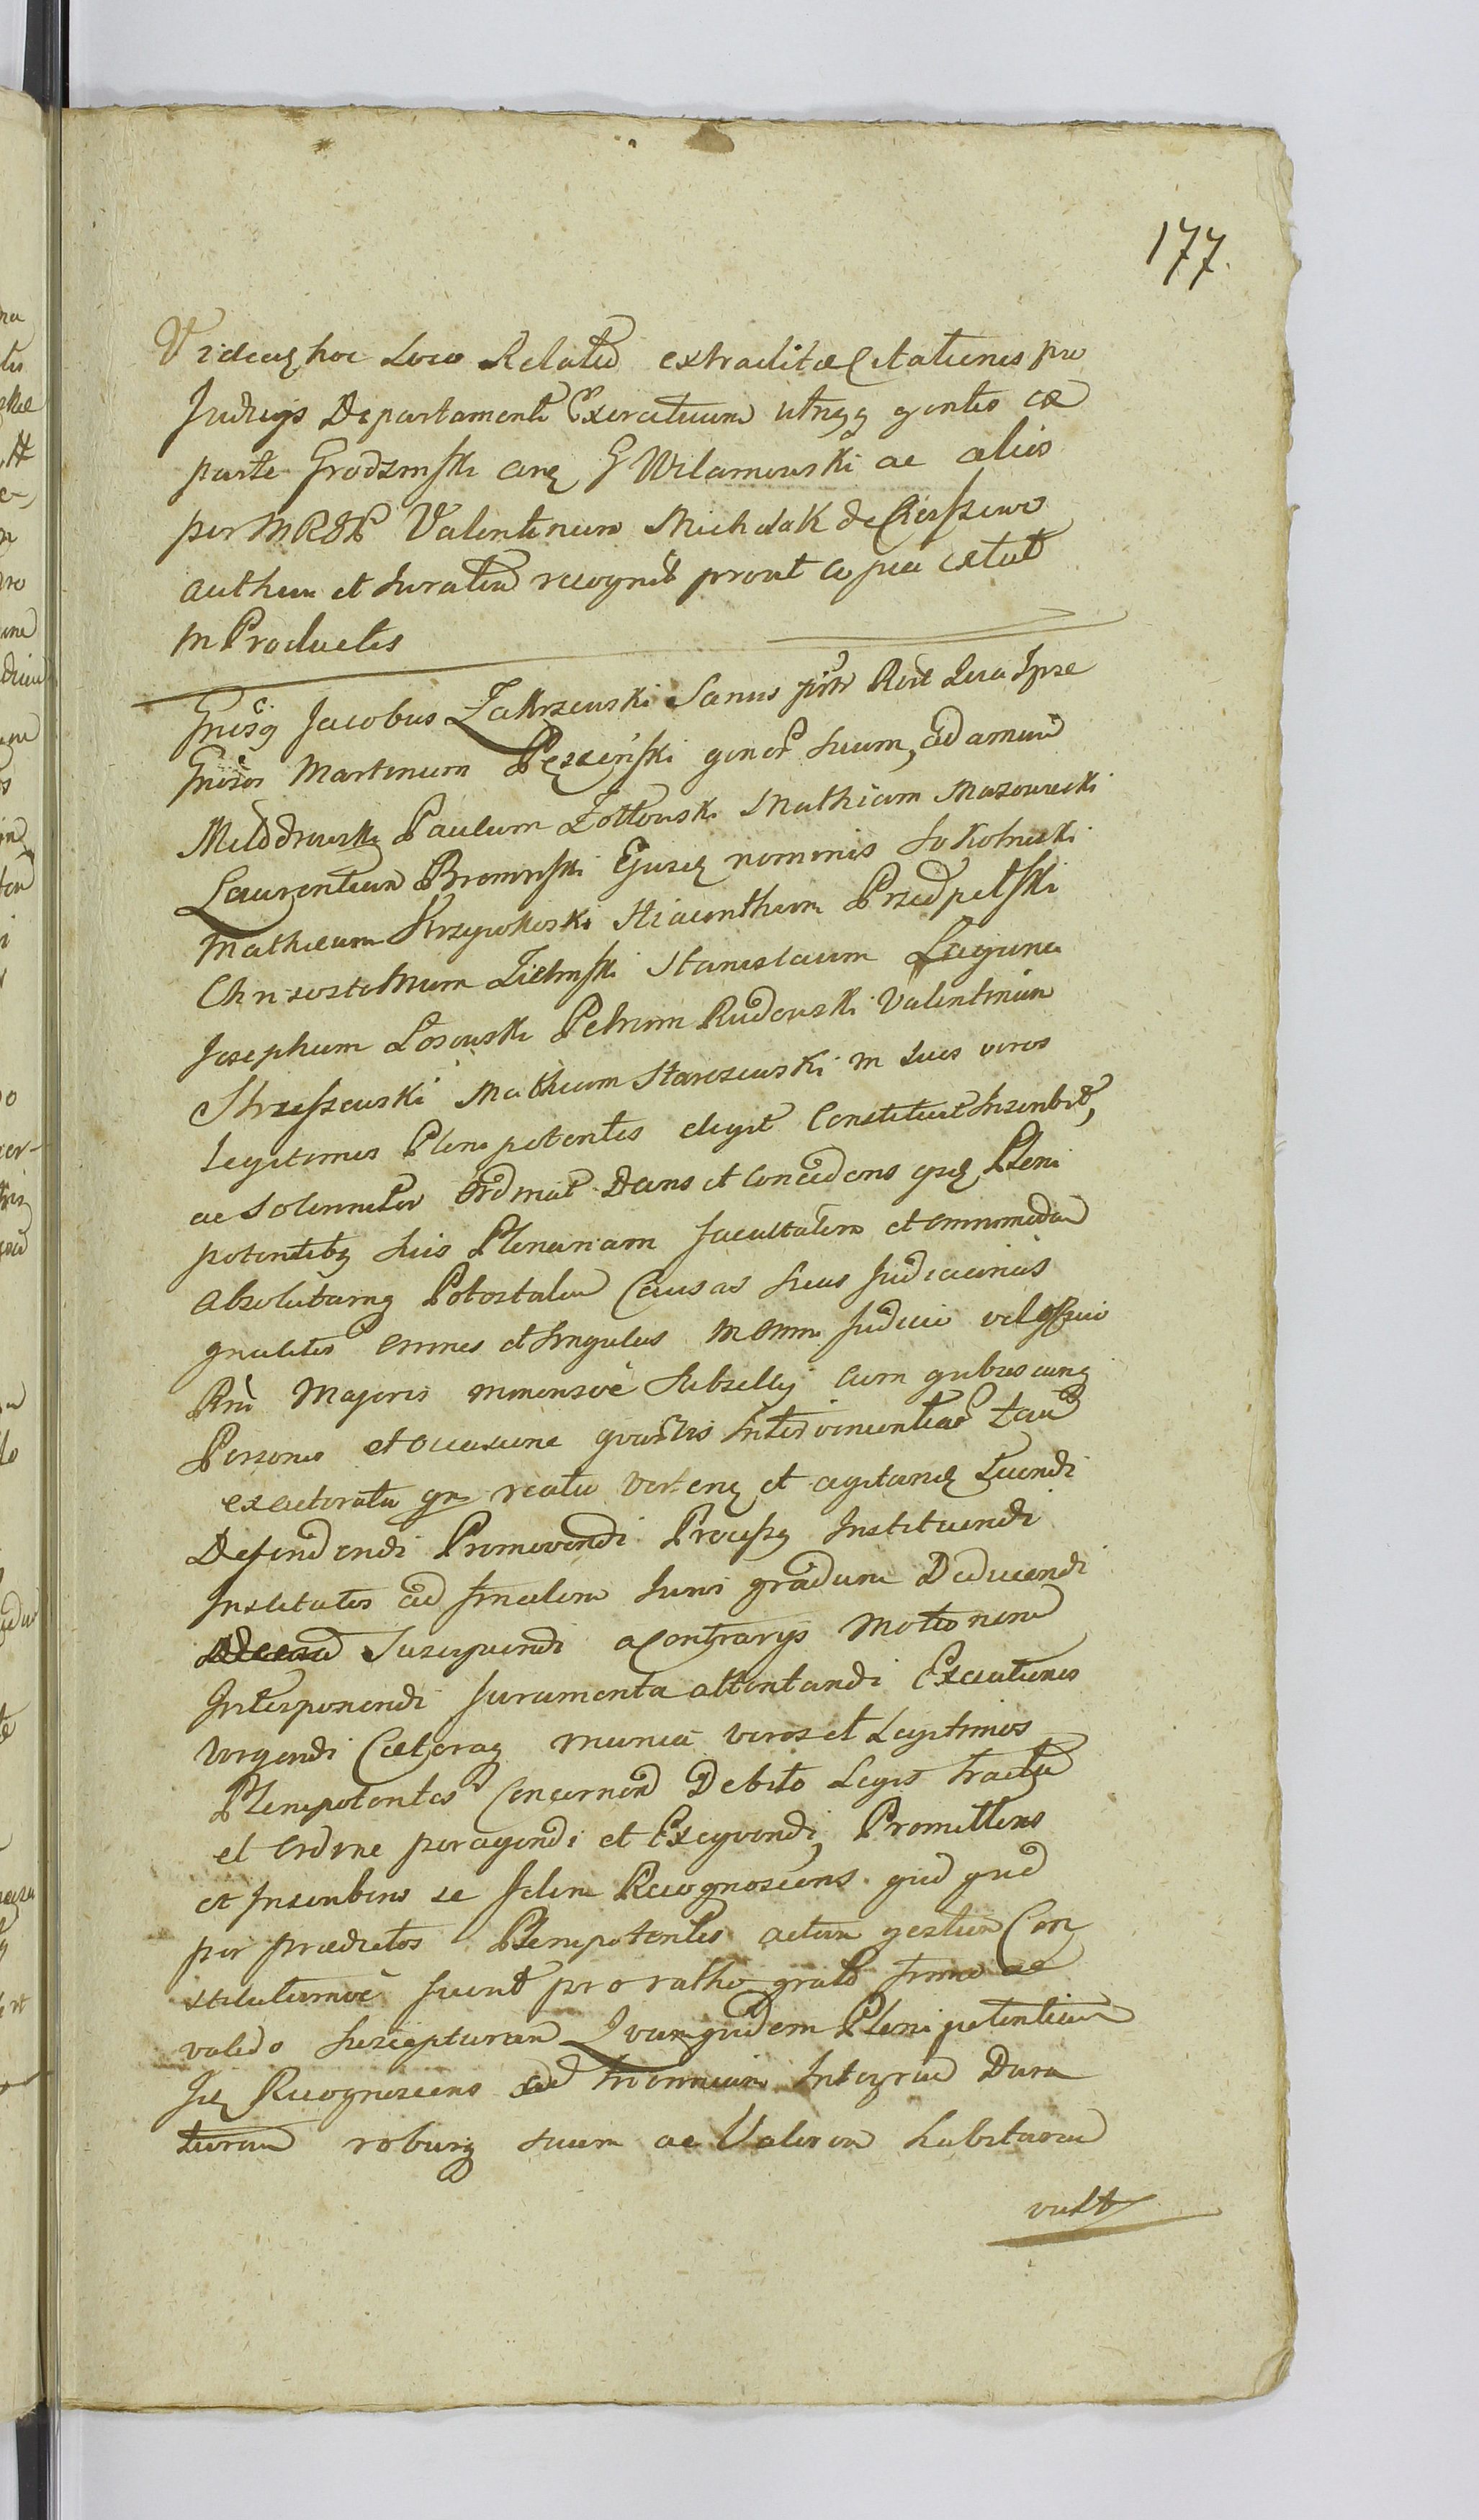 177.
Videatq hoc Loco Relatio extraditae Citationis pro
Judicijs Departamenti Exercituum utriusq gentis ex
parte Grodzinski ctra G Wilamowski ac alios
per M R G Valentinum Michalak de
authen et Juratim recognit prout copia extat
in Productis
Gnosq Jacobus Zakrzewski Sanus Rit Quia Ipse
Gnosos Martinum Pęzciński gener Suum, Adamum
Młodzowski Paulum Zołtowski Mathiam Mazowiecki
Laurentium Brominski Ejusq nominis Sokolnicki
Mathiam Krzywkoski Hiacinthum Przedpelski
Chrisostomum Zielinski Stanislaum Laguna
Josephum Losowski Petrum Rudowski Valentinum
Strzeszewski Matheum Starczewski in Suos veros
Legitimos Plenipotentes elegit Constituit Inscribit,
ac Solenniter Ordinat Dans et Concedens ijsq Pleni
potentibq Suis Plenariam facultatem et omnimodam
Absolutamq Potestatem Causas Suas Judiciarias
gnaliter omnes et Singulas in omni Judicio vel officio
Rni Majoris minorisve Subsellij cum quibuscunq
Personis et occasione quavis Intervenientiae tam
ex actoratu qm reatu verten et agitanq Tuendi
Defendendi Promovendi Processq Instituendi
Institutos ad finalem Juris gradum Deducendi
Suscipiendi a Contrarijs Motionem
Interponendi Juramenta attentandi Executiones
Urgendi Caeteraq munia veros et Legitimos
Plenipotentes Concernen Debito Legis tractu
et Ordine peragendi et Exequendi, Promittens
et Inscribens se Idem Recognoscens quid quid
per praedictos Plenipotentes actum gestum Con
stitutumve fuerit pro ratho grato firmo ac
valido Suscepturum Quamquidem Plenipotentiam
Iq Recognoscens ad triennium Integrum Dura
turam roburq suum ac Valorem habituram
vult